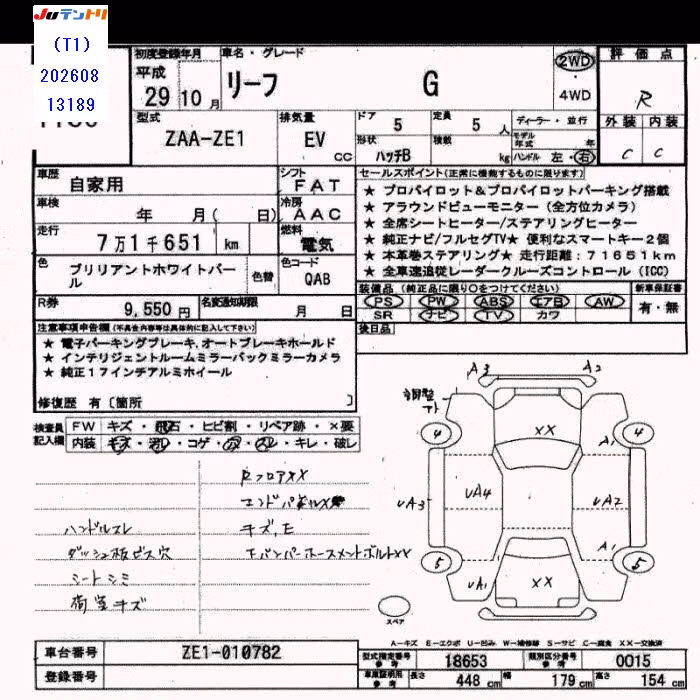 JUテントリ
(T1)
202608
13189
初度登録年月
平成
29 10 月
車名・グレード
リーフ G
2WD
4WD
評価点
R
型式
ZAA-ZE1
排気量
EV
CC
ドア
5
定員
5 人
ディーラー・並行
モデル年式 年
形状
ハッチB
積載
kg
ハンドル 左・右
外装 内装
C C
車歴
自家用
シフト
FAT
車検
年 月( 日)
冷房
AAC
走行
7万1千651 km
燃料
電気
色
ブリリアントホワイトパール
色替
色コード
QAB
R券
9,550 円
名変通知期限
月 日
セールスポイント(正常に機能するものに限ります)
★ プロパイロット&プロパイロットパーキング搭載
★ アラウンドビューモニター(全方位カメラ)
★ 全席シートヒーター/ステアリングヒーター
★ 純正ナビ/フルセグTV★ 便利なスマートキー2個
★ 本革巻ステアリング★ 走行距離:71651km
★ 全車速追従レーダークルーズコントロール(ICC)
装備品(純正品に限り○をつけてください)
PS PW ABS エアB AW
SR ナビ TV カワ
新車保証書
有・無
後日品
注意事項申告欄(不具合内容等は具体的に記入して下さい)
★ 電子パーキングブレーキ,オートブレーキホールド
★ インテリジェントルームミラーバックミラーカメラ
★ 純正17インチアルミホイール
修復歴 有〔箇所 〕
検査員記入欄
FW キズ・飛石・ヒビ割・リペア跡・×要
内装 キズ・汚レ・コゲ・穴・スレ・キレ・破レ
RフロアXX
エンドパネルX
ハンドルスレ
キズ,E
ダッシュ板ビス穴
FバンパーホースメントボルトXX
シートシミ
荷室キズ
A3 A2
4 XX 4
A1
UA3 UA4 UA2
A1
5 UA1 XX 5
スペア
A-キズ E-エクボ U-凹み W-補修跡 S-サビ C-腐食 XX-交換済
車台番号
ZE1-010782
登録番号
型式指定番号
参考
18653
類別区分番号
参考
0015
車庫証明用
参考
長さ 448 cm 幅 179 cm 高さ 154 cm